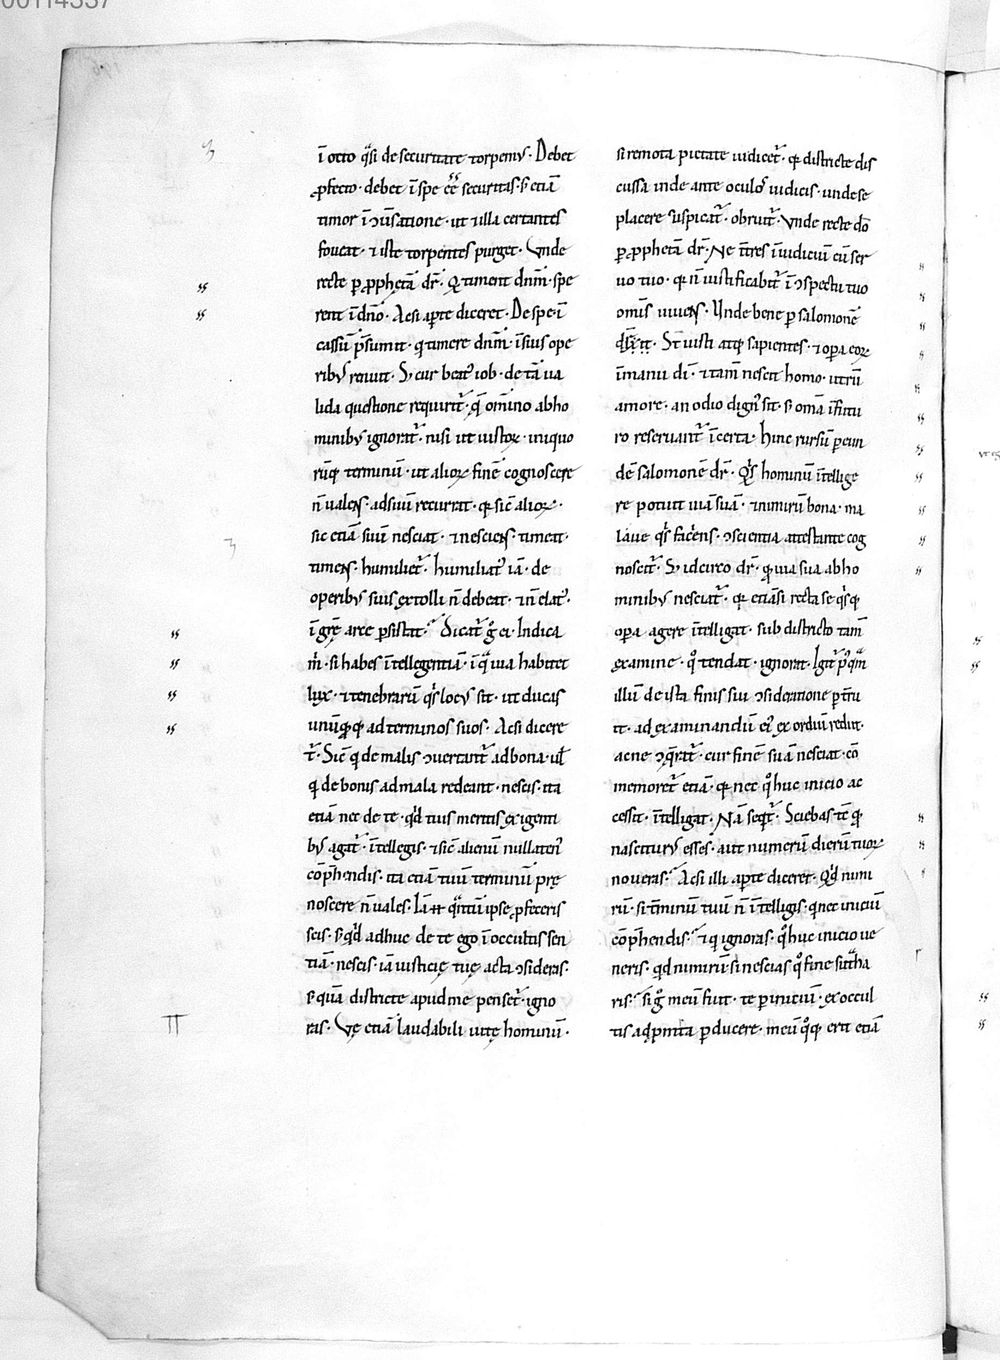 00114337
ī otio q̄si de securitate torpemꝰ. Debet
ꝓfecto. debet ī spe eē̄ securitas. s; etiā
timor ī ↄūsatione. ut ⁊ illa certantes
foueat. ⁊ iste torpentes purget. Vnde
recte ꝑ ꝓphetā dr̄. Q timent dnm̄. spe
rent ī dn̄o. Ac si aꝑte diceret. De spe ī
cassū p̄sumit. q timere dnm̄. ī suis ope
ribꝰ renuit. S; cur beatꝰ iob. de tā ua
lida questione requirit̄. q̄ om̄ino abho
minibꝰ ignorat̄. nisi ut iustoꝝ. iniquo
rūq; terminū. ut alioꝝ finē cognoscere
n̄ ualens. ad suū recurrat. q; sic̄ alioꝝ.
sic etiā suū nesciat. ⁊ nesciens. timeat.
timens. humiliet̄. humiliatꝰ iā. de
operibꝰ suis extolli n̄ debeat. ⁊ n̄ elatꝰ.
ī gr̄ę arce ꝑsistat. Dicat̄ g̊ ei. Indica
m̄. si habes ītellegentiā. ī q̄ uia habitet
lux. ⁊ tenebrarū q̄s locꝰ sit. ut ducas
unūq̄q; ad terminos suos. Ac si dicere
t̄. Sic̄ q̄ de malis ↄuertunt̄ ad bona. ul̄
q̄ de bonis ad mala redeant. nescis. ita
etiā nec de te. qd̄ tuis meritis exigenti
bꝰ agat̄. ītellegis. ⁊ sic̄ alienū nullatenꝰ
cōp̄hendis. ita etiā tuū terminū prę
noscere n̄ uales. Iā n̄ q̄ntū ipse ꝓfeceris
scis. s; qd̄ adhuc de te ego ī occultis sen
tiā. nescis. iā iusticię tuę acta ↄsideras.
s; quā districte apud me penset̄. igno
ras. Vę etiā laudabili uitę hominū.
si remota pietate iudicet̄. q; districte dis
cussa inde ante oculos iudicis. unde se
placere suspicat̄. obruit̄. Vnde recte dō
ꝑ ꝓphetā dr̄. Ne ītres ī iudiciū cū ser
uo tuo. q; n̄ iustificabit̄ ī ↄspectu tuo
omīs uiuens. Unde bene ꝑ salomonē
St iusti atq; sapientes. ⁊ oꝑa eoꝝ
ī manu di. ⁊ tam̄ nescit homo. utrū
amore. an odio dignꝰ sit. s; om̄a ī futu
ro reseruant̄ īcerta. Hinc rursū ꝑ eun
dē salomonē dr̄. Q̄s hominū ītellige
re potuit uiā suā. ⁊ nimirū bona. ma
laue q̄s faciens. ↄscientia attestante cog
noscit̄. S; idcirco dr̄. q uia sua abho
minibꝰ nesciat̄. q; etiā si recta se q̄sq;
oꝑa agere ītelligat. sub districto tam̄
examine. q̊ tendat. ignorat. Igit̄ p̊q̄m
illū de ista finis sui ↄsideratione ꝑtru
it. ad examinandū ei exordiū redit.
ac ne ↄq̄rat̄. cur finē suū nesciat. cō
memoret̄ etiā. q; nec q̊ huc inicio ac
cessit. ītelligat. Nā seqt̄. Sciebas tc̄ q;
nasciturꝰ esses. aut numerū dierū tuoꝝ
noueras. Ac si illi aꝑte diceret. Qd̄ miri
rū. si t̄minū tuū n̄ ītelligis. q nec iniciū
cōp̄hendis. ⁊ q ignoras. q̊ huc inicio ue
neris. qd̄ nimirū si nescias q̊ fine subtha
ris. si g̊ meū fuit. te ꝑ iniciū. ex occul
tis ad publica ꝑducere. meū q̊q; erit etiā